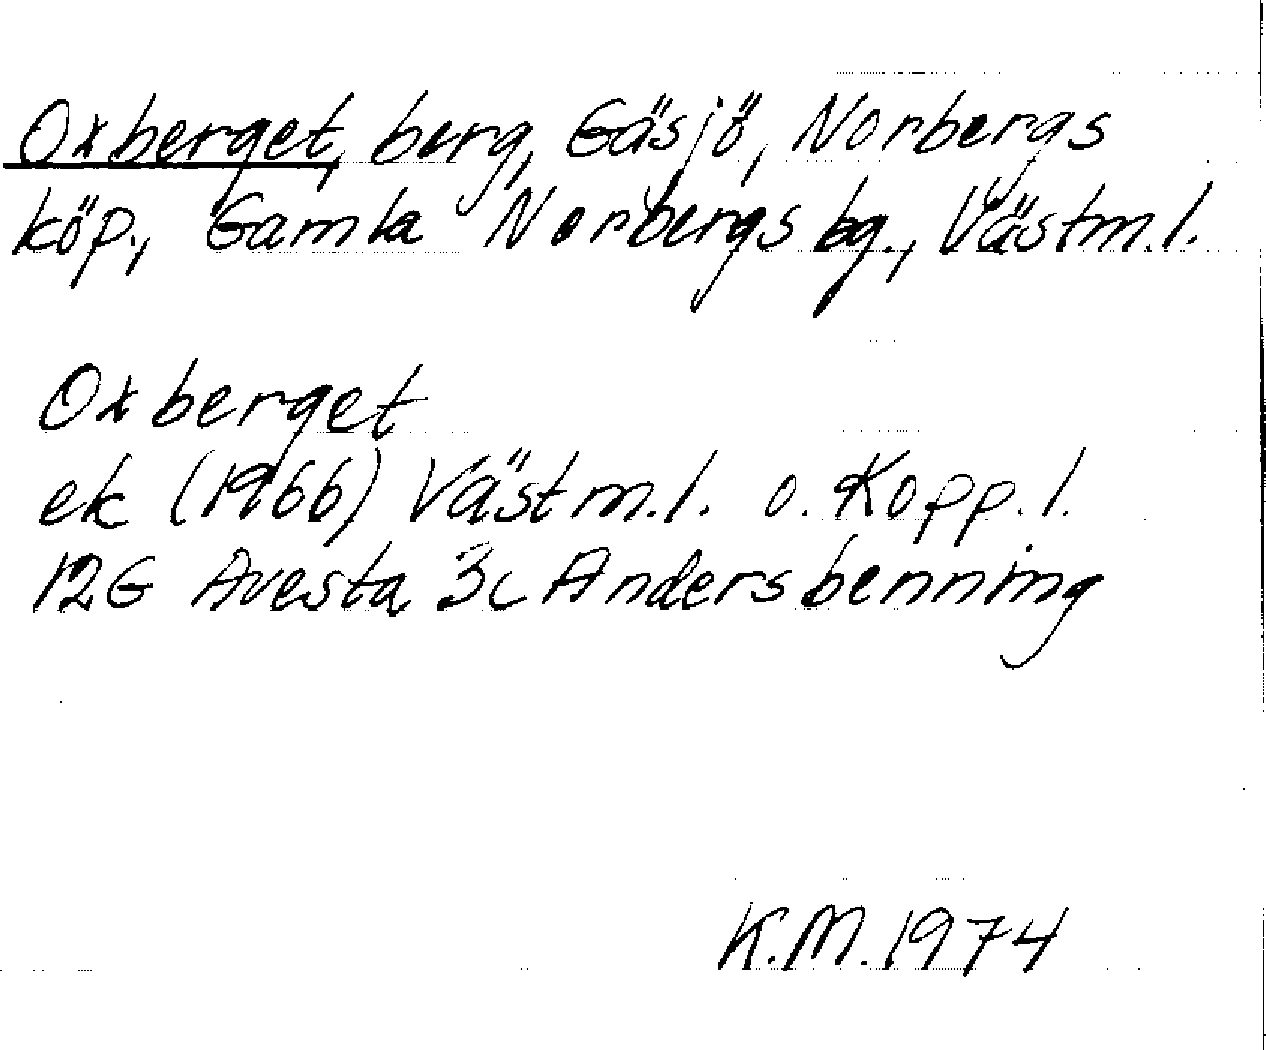 Oxberget, berg, Gäsjö, Norbergs
köp., Gamla Norbergs bg., Västm.l.
Oxberget
ek (1966) Västm.l. o. Kopp.l.
12G Avesta 3c Andersbenning
K.M. 1974